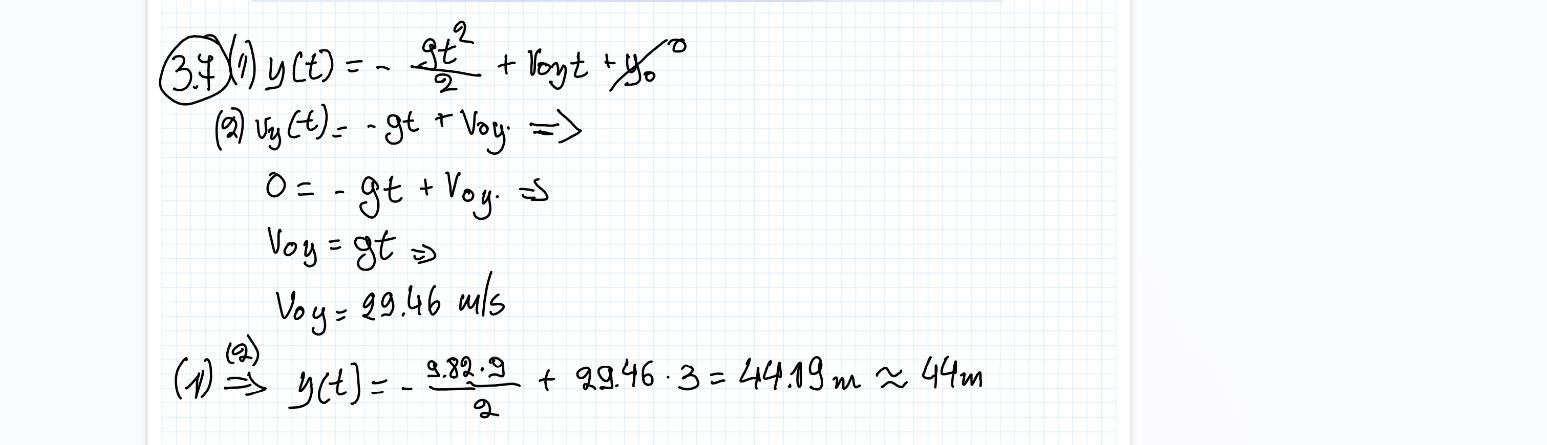 3.7 (1) y(t) = - gt²/2 + V₀yt + y₀ 0
(2) Vy(t) = - gt + V₀y. =>
0 = - gt + V₀y. =>
V₀y = gt =>
V₀y = 29.46 m/s
(1) (2) => y(t) = - 9.82·9/2 + 29.46·3 = 44.19m ≈ 44m